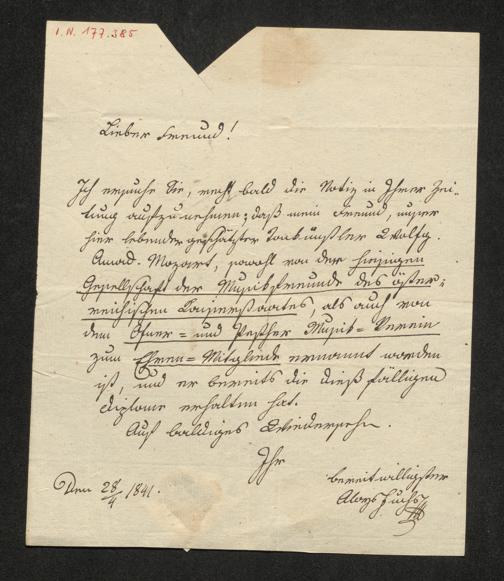 I.N. 177.385
Lieber Freund!
Ich ersuche Sie, recht bald die Notiz in Ihrer Zei-
tung aufzunehmen; daß mein Freund, unser
hier lebender geschätzter Tonkünstler Wolfg.
Amad. Mozart, sowohl von der hiesigen
Gesellschaft der Musikfreunde des öster-
reichischen Kaiserstaates, als auch von
dem Ofner- und Pesther Musik-Verein
zum Ehren-Mitgliede ernannt worden
ist, und er bereits die dießfälligen
Diplome erhalten hat.
Auf baldiges Wiedersehn.
Ihr
bereitwilligster
Aloys Fuchs
Den 28/4 1841.